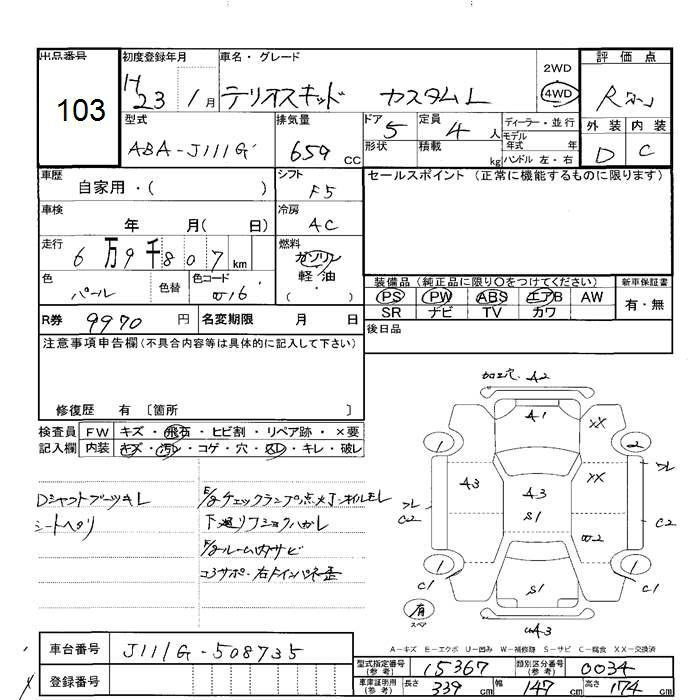 出品番号
103
初度登録年月
H 23 / 1月
車名・グレード
テリオスキッド カスタムL
2WD
4WD
評価点
外装 内装
D C
型式
ABA-J111G
排気量
659 CC
ドア 5
形状
定員 4 人
積載 kg
ディーラー・並行
モデル
年式 年
ハンドル 左・右
車歴
自家用・( )
シフト
F5
セールスポイント (正常に機能するものに限ります)
車検
年 月( 日)
冷房
AC
走行
6万9千807km
燃料
ガソリン
軽・油
( )
色
パール
色替
色コード
W16
装備品 (純正品に限り○をつけてください)
PS PW ABS エアB AW
SR ナビ TV カワ
新車保証書
有・無
R券 9970 円
名変期限 月 日
後日品
注意事項申告欄(不具合内容等は具体的に記入して下さい)
修復歴 有 〔箇所 〕
検査員
記入欄
FW キズ・飛石・ヒビ割・リペア跡・×要
内装 キズ・汚レ・コゲ・穴・スレ・キレ・破レ
Dシャフトブーツキレ
シートヘタリ
E/gチェックランプ点メツ・オイルモレ
下廻リフショクハガレ
F/gルーム内サビ
コアサポ・右Fインパネ歪
加工穴・A2
A1
XX
1
2
A3
XX
フレ
フレ
C2
A3
S1
C2
W2
1
1
C1
S1
C1
有
スペア
A3
A-キズ E-エクボ U-凹み W-補修跡 S-サビ C-腐食 XX-交換済
車台番号 J111G-508735
登録番号
型式指定番号
(参考)
15367
類別区分番号
(参考)
0034
車庫証明用
(参考)
長さ 339 cm 幅 147 cm 高さ 174 cm